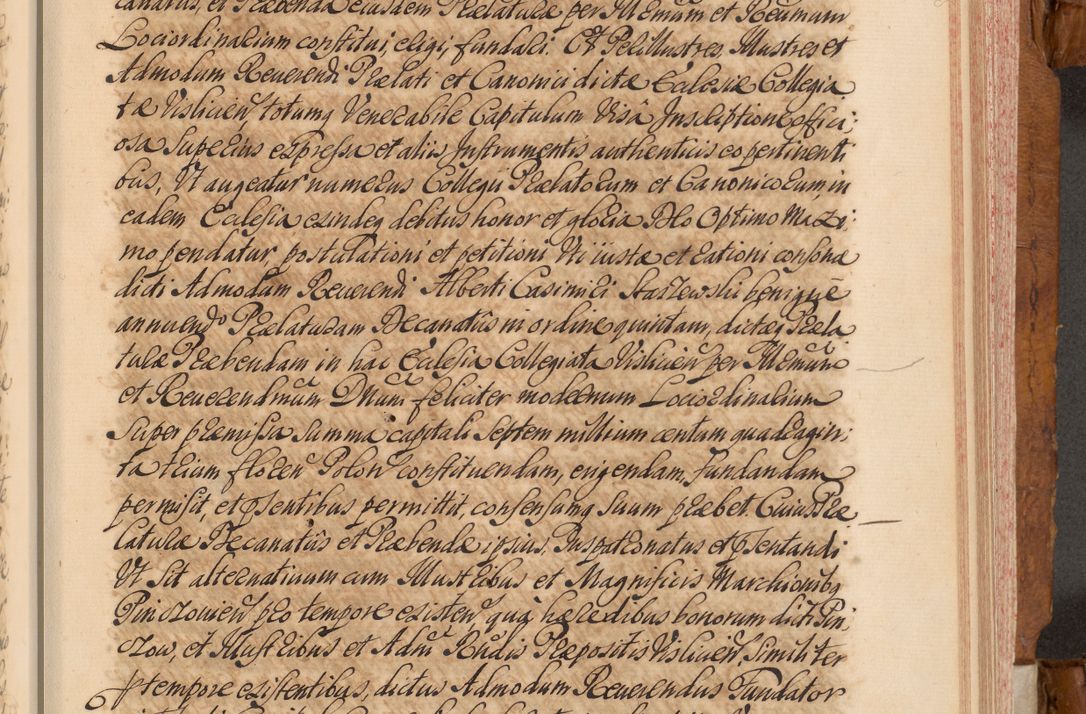 canatus, et Præbenda eiusdem Prælaturæ per Illmum et Reumum
Lociordinarium constitui, erigi, fundari. Et Perillustres Illustres et
Admodum Reuerendi Prælati et Canonici dictæ Ecclesiæ Collegia
tæ Vislicien totumq Venerabile Capitulum Visâ Inscriptione offici;
osa superius expressa et aliis Instrumentis authenticis eo pertinenti
bus, Vt augeatur numerus Collegii Prælatorum et Canonicorum, in
eadem Ecclesia exindeq debitus honor et gloria DEo Optimo Maxi:
mo pendatur postulationi et petitioni Vti iustæ et rationi consonæ
dicti Admodum Reuerendi Alberti Casimiri Starzewski benignè
annuendo Prælaturam Decanatûs in ordine quintam, dictæq Præla
turæ Præbendam in hac Ecclesia Collegiata Vislicien per Illmum
et Reuerendmum Dnum feliciter modernum Lociordinarium
super præmissa summa capitali Septem millium centum quadragin;
ta trium floren Polon constituendam, erigendam, Fundandam
permisit, et psentibus permittit, consensumq suum præbet. Cuius Præ
laturæ Decanatûs et Præbendæ ipsius, Juspatronatus et psentandi
Vt sit alternatiuum cum Illustribus et Magnificis Marchionibq
Pinczouien pro tempore existen quà hæredibus bonorum dicti Pin;
czow, et Illustribus et Adm Rudis Præpositis Vislicien, Similiter
p tempore existentibus, dictus Admodum Reuerendus Fundator